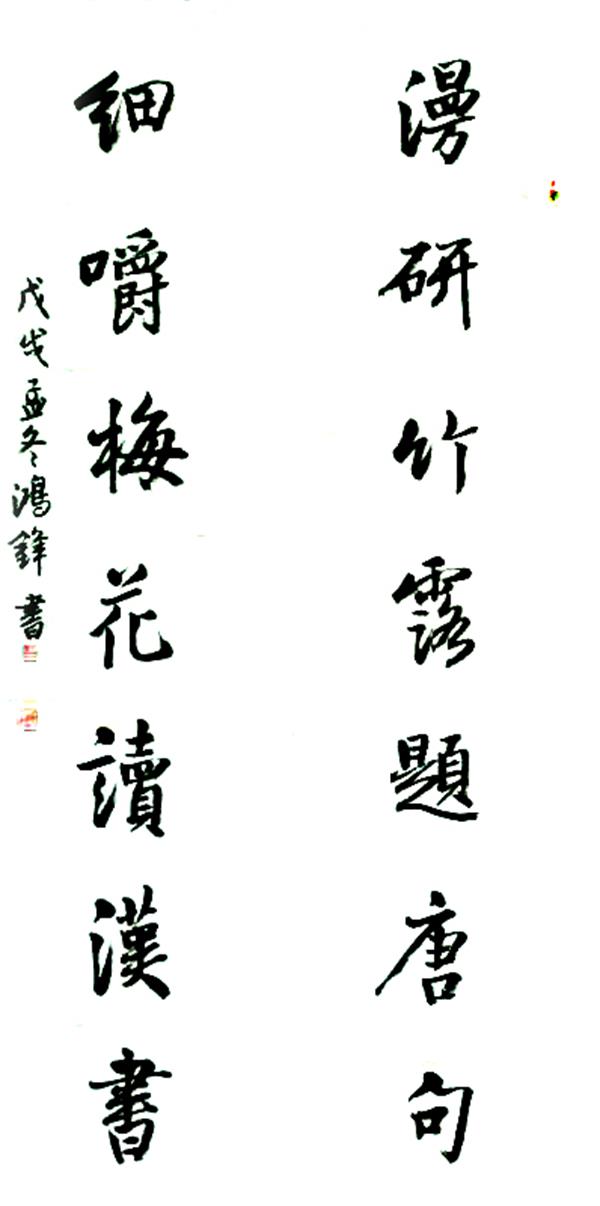 漫研竹露題唐句
細嚼梅花讀漢書
戊戌孟冬鴻鋒書